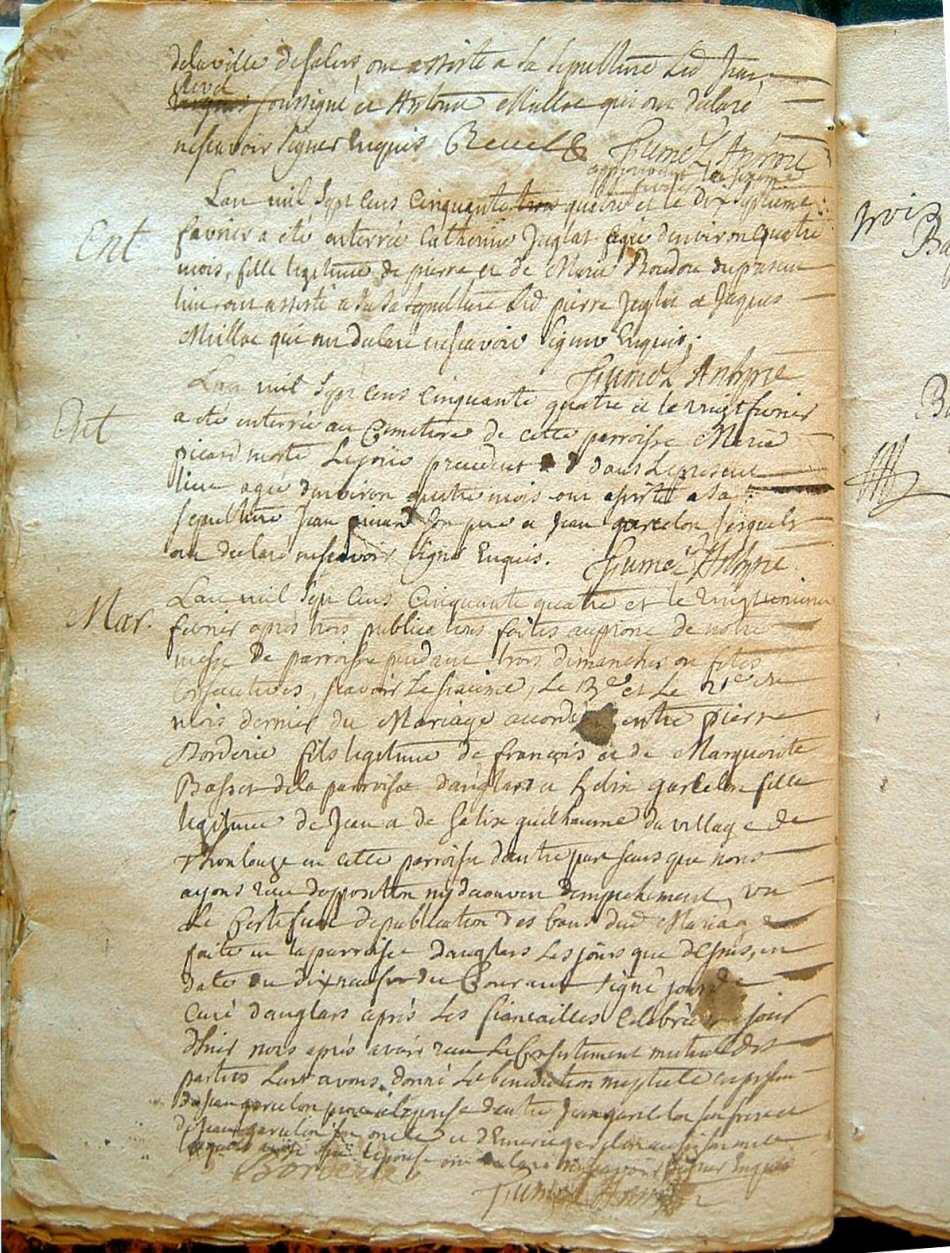 dela ville de Salers ont assisté a la sepulture Led Jean
Revel soussigné et Antoine Mullac qui ont declaré
nescavoir signer Enquis Revel
approuvant
Lan mil Sept Cens Cinquante quatre et le Dix Septieme
Ent
favrier a eté enterrée Catherine Juglar agée denviron quatre
mois, fille legitime de pierre et de Marie du present
lieu, ont assisté a sa Sepulture Led pierre Juglar et Jaques
Mullac qui ont declaré nescavoir signer Enquis;
Lan mil Sept Cens Cinquante quatre et le vingt fevrier
Ent
a eté enterrée au Cemetiere de cette parroisse Marie
picard morte Lejour precedent dans Lepresent
lieu agée denviron quatre mois ont assisté a sa
sepulture Jean picard son pere et Jean garcelon lesquels
ont declaré nescavoir signer Enquis.
Lan mil Sept Cens Cinquante quatre et le
Mar.
fevrier après trois publications faites auprone de notre
messe De parroisse pendant trois dimanches ou fetes
Consecutives, scavoir Le, Le 13e et Le 21e du
mois dernier du Mariage accordé entre pierre
Borderie fils legitime de françois et de Marguerite
Basset dela parroisse danglars et garcelon fille
legitime de Jean et de guilhaume du village de
en cette parroisse dautre part sans que nous
ayons recu dopposition ny decouvert dempechement, vu
Le Certificat de publication des bans dud Mariage
faite en la parroisse danglars Les jours que dessus, en
date du dixneuf du Courant signé
Curé danglars après Les fiancailles Celebrées
dhuir nous après avoir recu Le Consentement mutuel des
parties Leur avons donné La benediction nuptiale en presence
De Jean garcelon pere a Lepouse dautre Jean garcelon son frere et
de Jean garcelon son oncle et garcelon aussi son oncle
Lepouse ont declaré nescavoir signer Enquis
Borderie